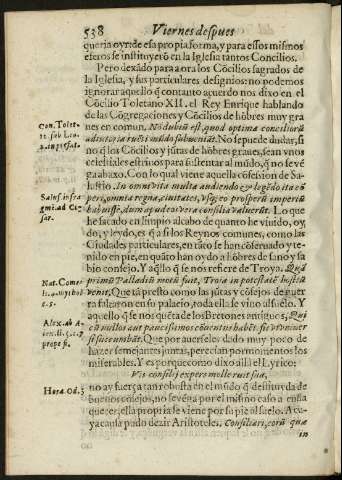 538 Viernes despues
queria oyr de esa propia forma, y para essos mismos
efetos se instituyerõ en la Iglesia tantos Concilios.
Pero dexãdo para aora los Cõcilios sagrados de
la Iglesia, y sus particulares designios: no podemos
ignorar aquello q̃ contanto acuerdo nos dixo en el
Cõcilio Toletano XII. el Rey Enrique hablando
de las Cõgregaciones y Cõcilios de hõbres muy gra
nes en comun. No dubiũ est, quod optima conciliorũ
adiutoria ruẽti mũdo subueniãt. No se puede dudar, si
no q̃ los Cõcilios y jũtas de hõbres graues, sean vnos
celestiales estriuos para sustentar al mũdo, q̃ no se vẽ
ga abaxo. Con lo qual viene aquella cõfession de Sa-
lustio. In omni vita multa audiendo & legẽdo ita cõ
peri, omnia regna, ciuitates, vsq; eo prosperũ imperiũ
habuisse, dum apud eos vera consilia valuerũt. Lo que
he sacado en limpio al cabo de quanto he viuido, oy,
do, y leydo, es q̃ a si los Reynos comunes, como las
Ciudades particulares, en tãto se han cõseruado y te-
nido en pie, en quãto han oydo a hõbres de sano y sa
bio consejo. Y aq̃llo q̃ se nos refiere de Troya. Quã
primũ Palladiũ motũ fuit, Troia in potestatẽ hostiũ
venit. Que tã presto como las jũtas y cõsejos de gue-
rra salieron en su palacio, toda ella se vino al suelo. Y
aquello q̃ se nos quẽta de los Bretones antiguos, Qui
cũ nullos aut paucissimos cõuentus habẽt, sic vt viuer
si succumbãt. Que por auerseles dado muy poco de
hazer semejantes juntas, perecian por momentos los
miserables. Y es porque como dixo alla el Lyrico:
Vis consilij expers mole ruit sua.
no ay fuerça tan robusta en el mũdo q̃ destituyda de
buenos consejos, no se vẽga por el mismo caso a ensla
quecer, ella propria se viene por su pie al suelo. A cu-
ya causa pudo dezir Aristoteles. Consiliarij, corũ quæ
in
Con. Tole-
Salus. in fra
gmẽ. ad Ce
sar.
Nat. Come
Alex. ab A-
Hora. Od. 3